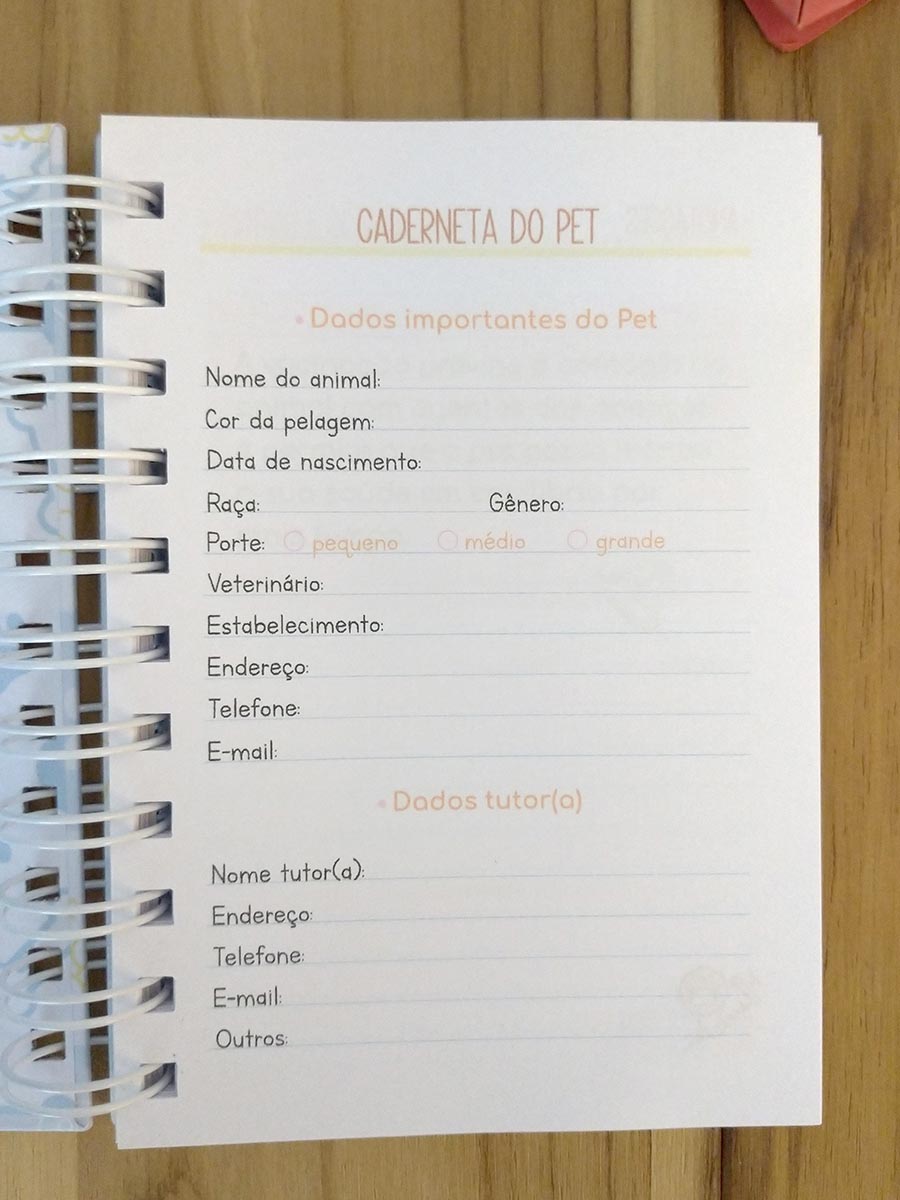 CADERNETA DO PET
• Dados importantes do Pet
Nome do animal:
Cor da pelagem:
Data de nascimento:
Raça: Gênero:
Porte: pequeno médio grande
Veterinário:
Estabelecimento:
Endereço:
Telefone:
E-mail:
• Dados tutor(a)
Nome tutor(a):
Endereço:
Telefone:
E-mail:
Outros: